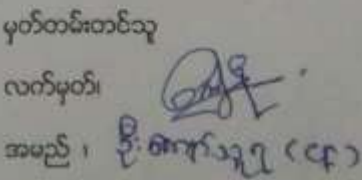 မှတ်တမ်းတင်သူ
လက်မှတ်၊
အမည် ၊ ဦးကျော်သူရ (ငန)